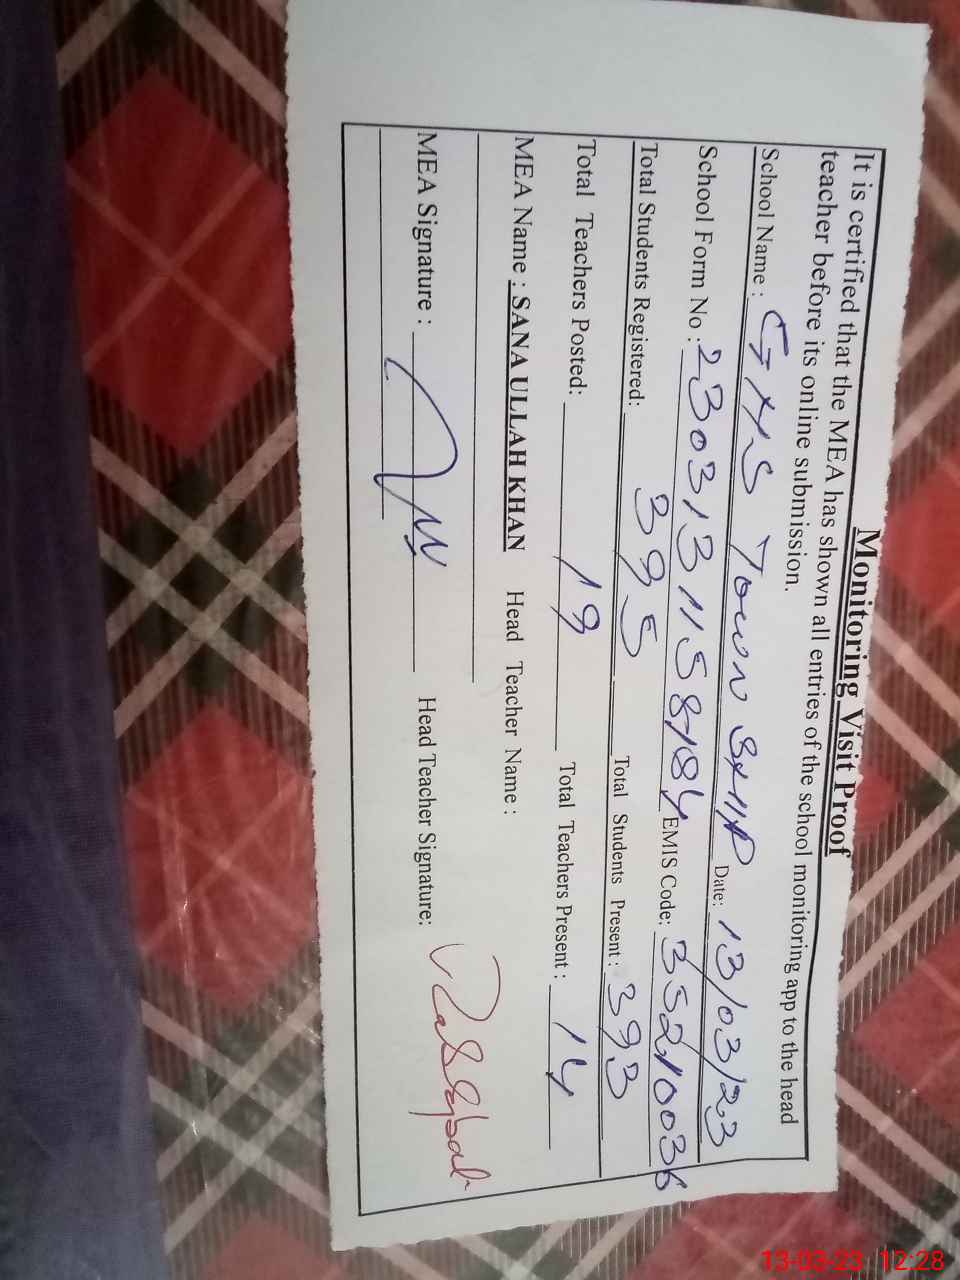 Monitoring Visit Proof
It is certified that the MEA has shown all entries of the school monitoring app to the head
teacher before its online submission.
School Name : GHS TOWN SHIP Date: 13/03/23
School Form No : 2303131158484 EMIS Code: 35210036
Total Students Registered: 395 Total Students Present : 393
Total Teachers Posted: 19 Total Teachers Present : 14
MEA Name : SANA ULLAH KHAN Head Teacher Name :
MEA Signature : Head Teacher Signature:
13-03-23 12:28